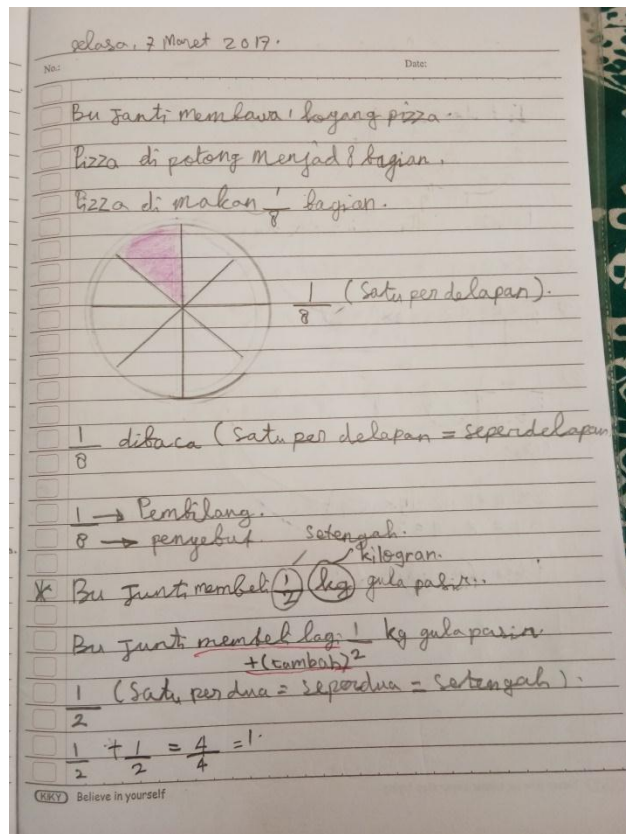 selasa, 7 Maret 2017.
No.: Date:
Bu Janti membawa 1 loyang pizza.
Pizza di potong menjad 8 bagian.
Pizza di makan 1/8 bagian.
1/8 (Satu per delapan).
1/8 dibaca (Satu per delapan = seperdelapan
1 → Pembilang.
8 → penyebut.
setengah.
kilogran.
* Bu Junti membeli 1/2 kg gula pasir.
Bu Junti membeli lagi 1/2 kg gula pasir.
+(tambah)
1/2 (Satu per dua = seperdua = setengah).
1/2 + 1/2 = 4/4 = 1.
KIKY Believe in yourself